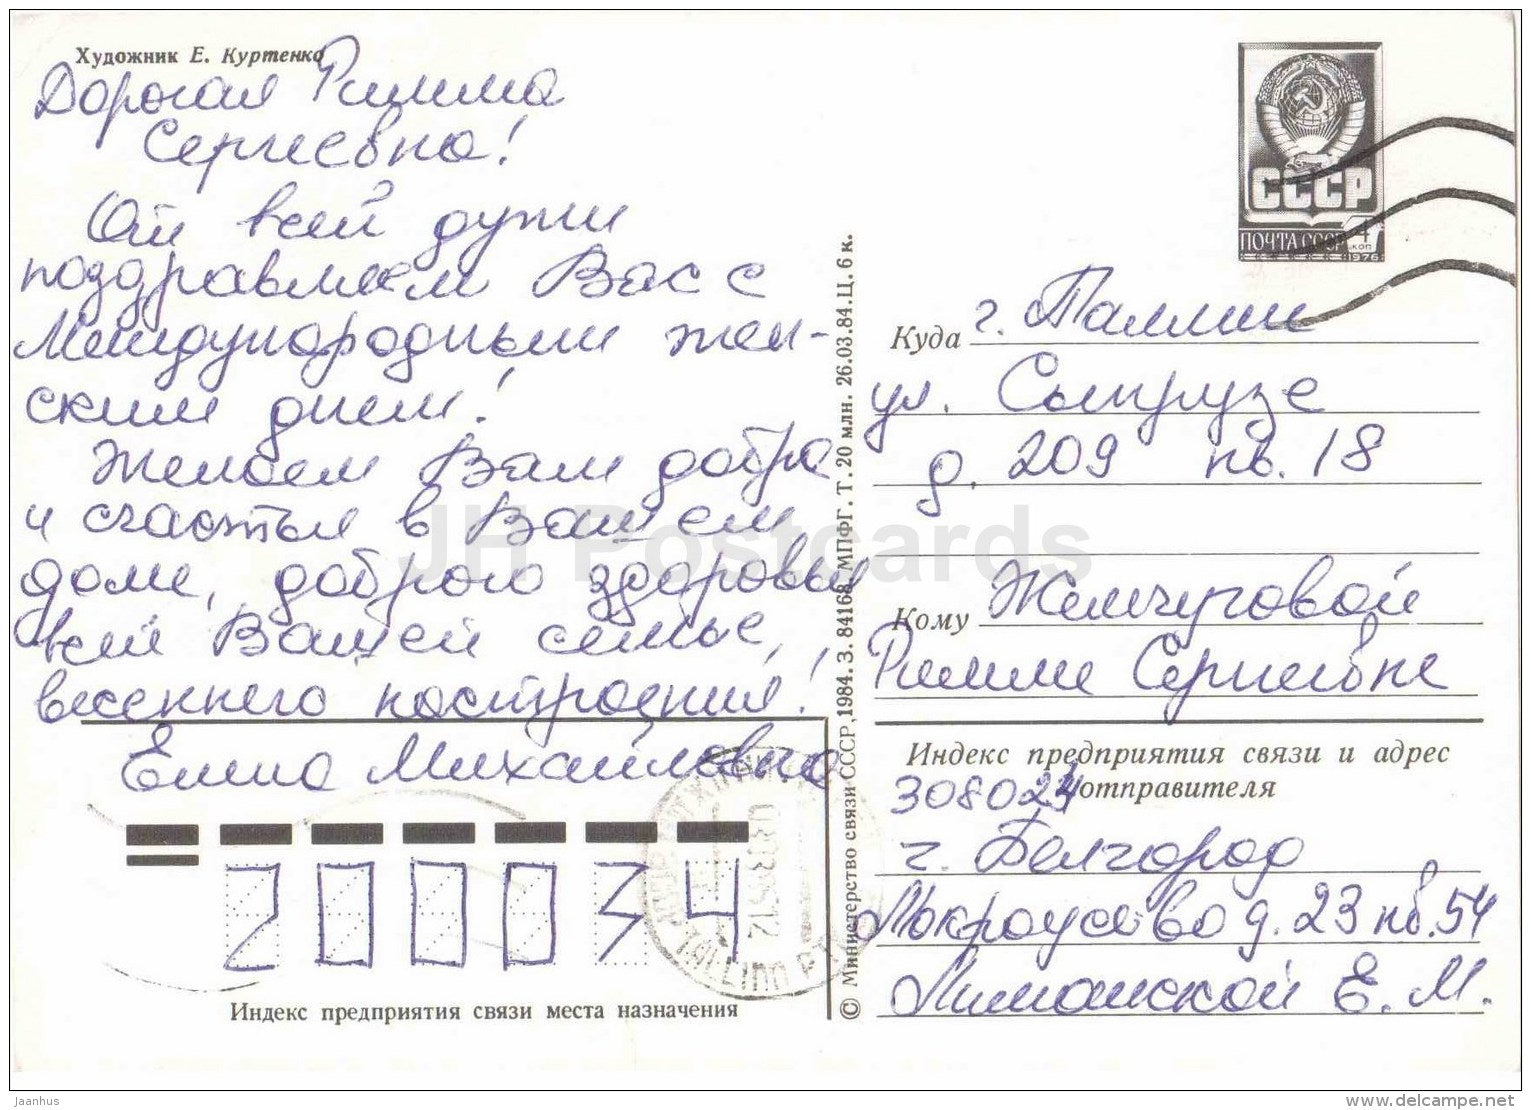 Художник Е. Куртенко
Дорогая Римма
Сергеевна!
От всей души
поздравляем Вас с
Международным жен-
ским днем!
Желаем Вам добра
и счастья в Вашем
доме, доброго здоровья
всей Вашей семье,
весеннего настроения!
Елена Михайловна
200034
Индекс предприятия связи места назначения
© Министерство связи СССР, 1984. З. 84168. МПФГ. Т. 20 млн. 26.03.84. Ц. 6 к.
СССР
ПОЧТА СССР 4 коп
1976
Куда г. Таллин
ул. Сыпрузе
д. 209 кв. 18
Кому Жемчуговой
Римме Сергеевне
Индекс предприятия связи и адрес
отправителя
308024
г. Белгород
д. 23 кв. 54
Лиманской Е. М.
TALLINN
JH Postcards
Jaanhus
delcampe.net